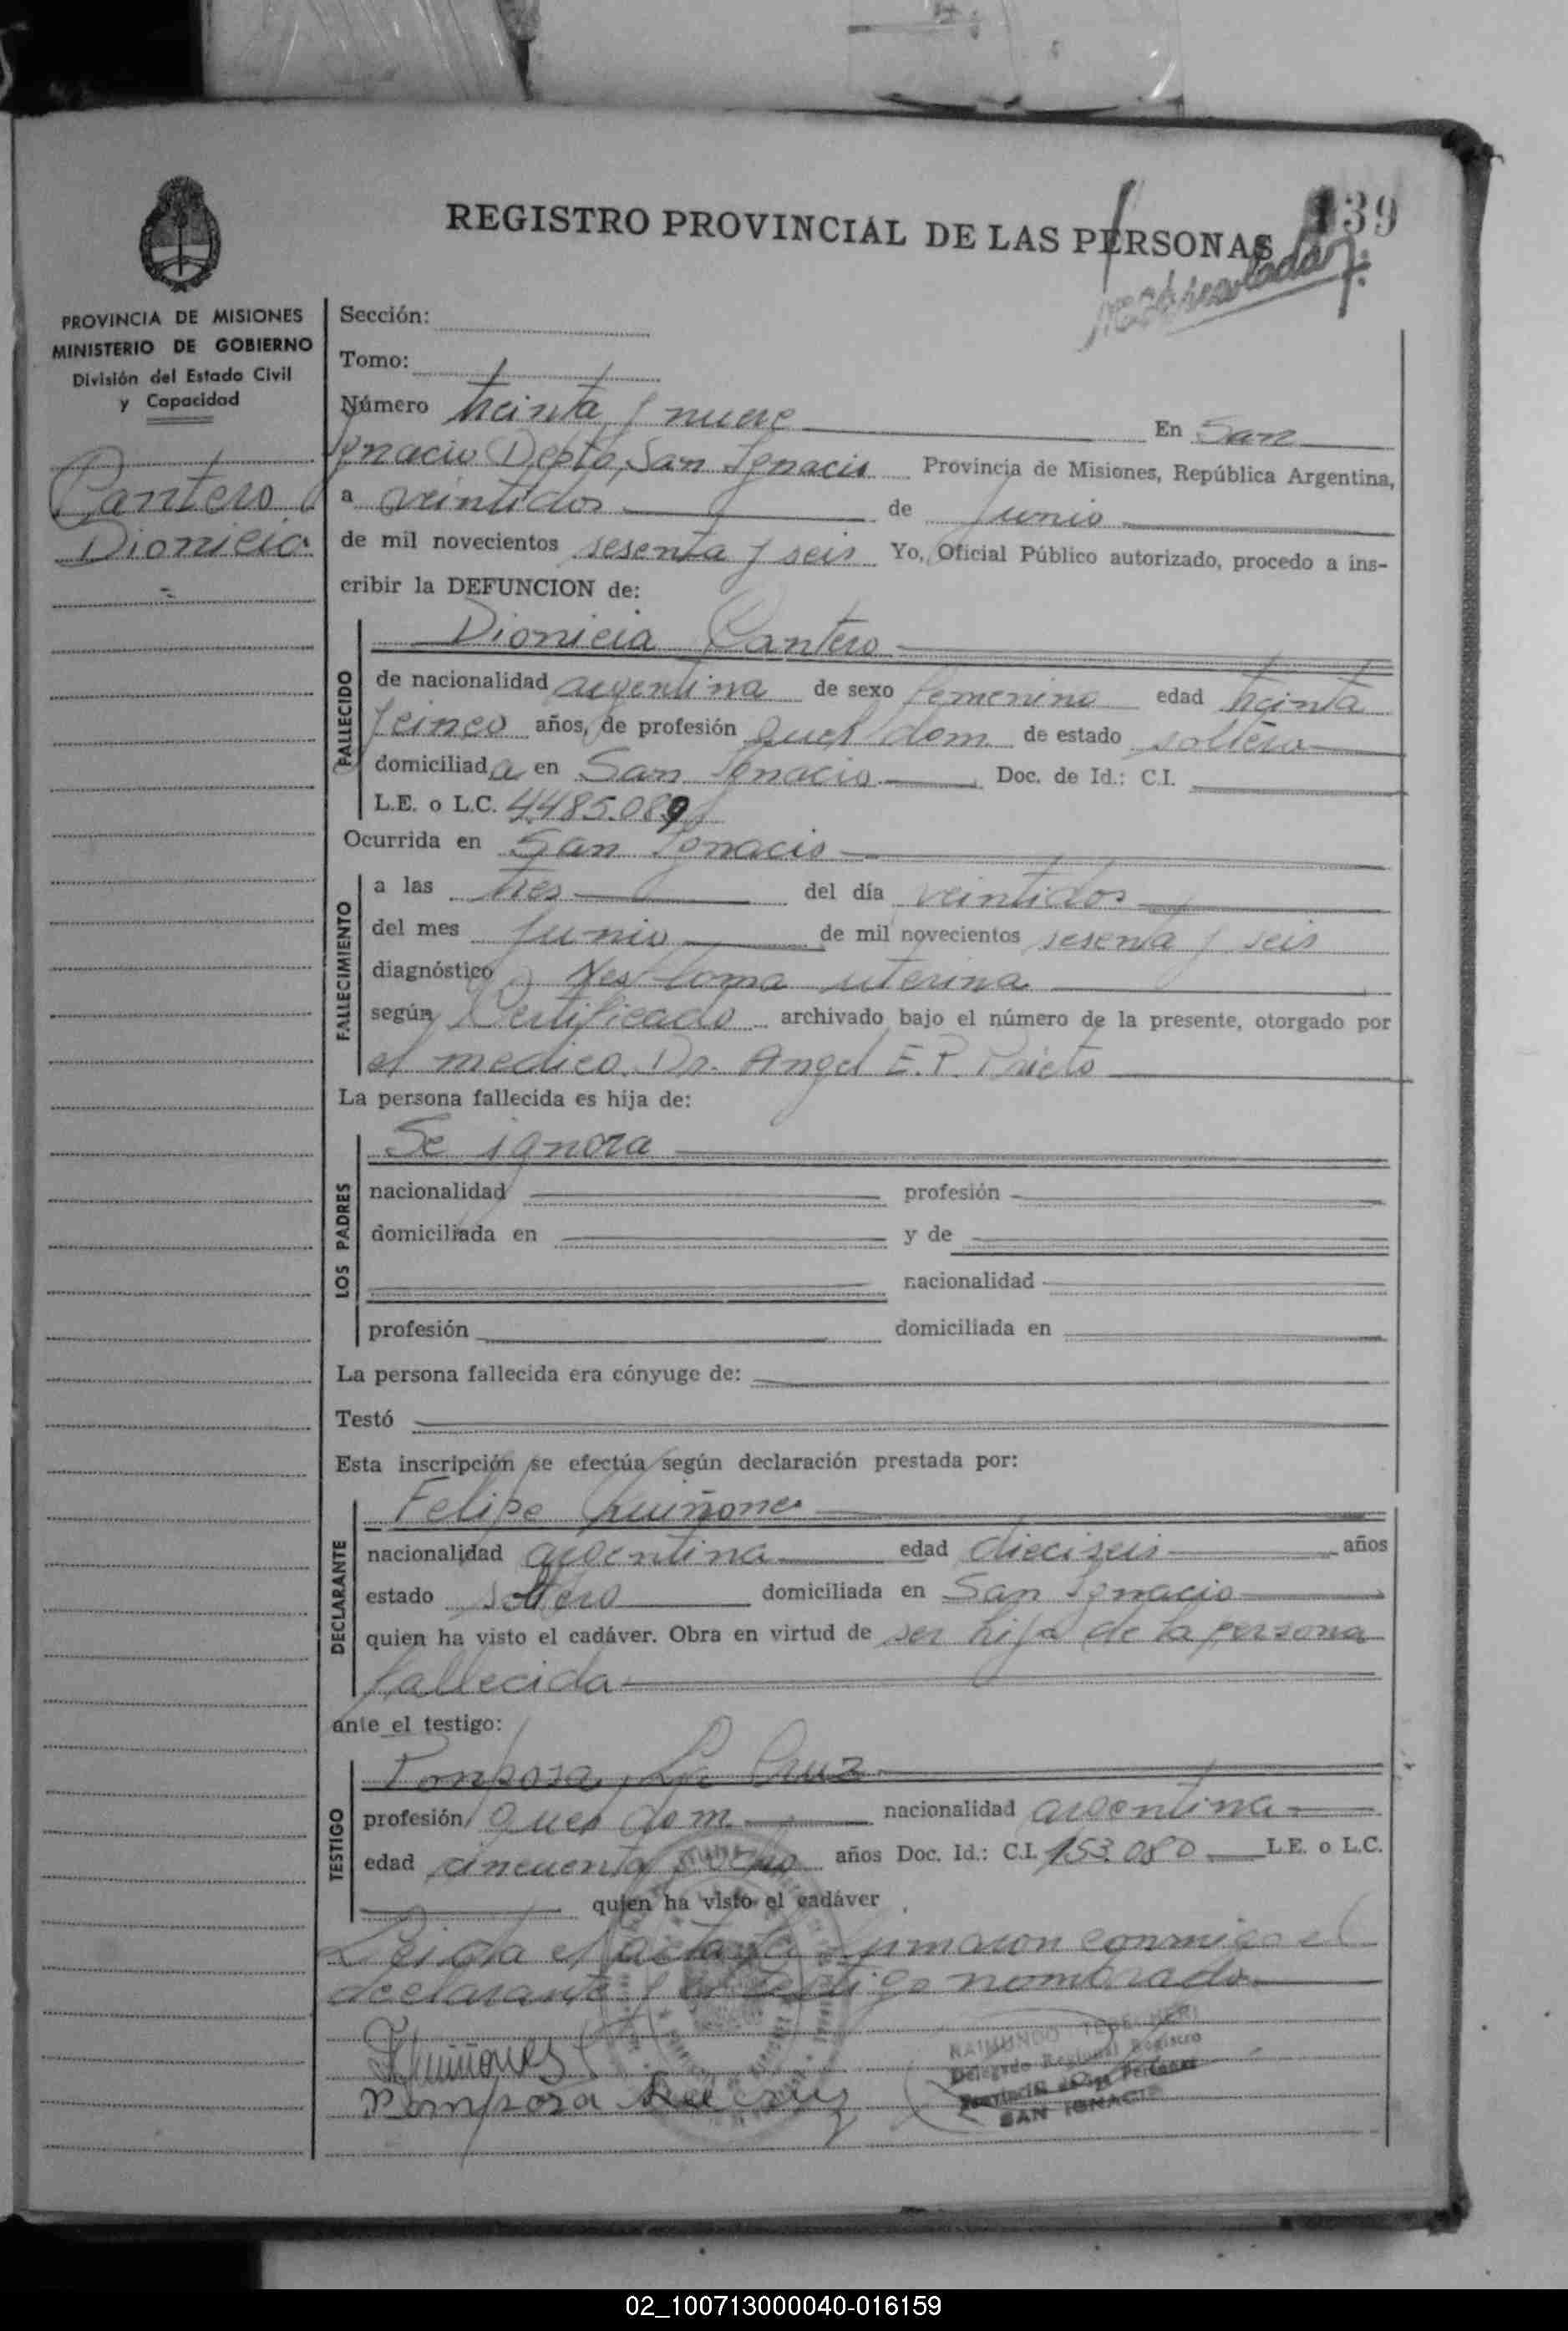 139
REGISTRO PROVINCIAL DE LAS PERSONAS
PROVINCIA DE MISIONES
MINISTERIO DE GOBIERNO
División del Estado Civil
y Capacidad
Cantero
Dionicia
Sección:
Tomo:
Número treinta y nueve En San
Ignacio Depto, San Ignacio Provincia de Misiones, República Argentina,
a veintidos de Junio
de mil novecientos sesenta y seis Yo, Oficial Público autorizado, procedo a ins-
cribir la DEFUNCION de:
Dionicia Cantero
FALLECIDO
de nacionalidad argentina de sexo femenino edad treinta
y cinco años, de profesión queh dom. de estado soltera
domiciliada en San Ignacio Doc. de Id.: C.I.
L.E. o L.C. 4.485.089
Ocurrida en San Ignacio
FALLECIMIENTO
a las tres del día veintidos
del mes Junio de mil novecientos sesenta y seis
diagnóstico uterina
según Certificado archivado bajo el número de la presente, otorgado por
el medico Dr. Angel E. P. Prieto
La persona fallecida es hija de:
LOS PADRES
Se ignora
nacionalidad profesión
domiciliada en y de
nacionalidad
profesión domiciliada en
La persona fallecida era cónyuge de:
Testó
Esta inscripción se efectúa según declaración prestada por:
DECLARANTE
Felipe Quiñones
nacionalidad argentina edad dieciseis años
estado soltero domiciliada en San Ignacio
quien ha visto el cadáver. Obra en virtud de ser hijo de la persona
fallecida
ante el testigo:
TESTIGO
Ponposa La Cruz
profesión queh dom. nacionalidad argentina
edad cincuenta y ocho años Doc. Id.: C.I. 153.080 L.E. o L.C.
quien ha visto el cadáver
Leida el acta la firmaron conmigo el
declarante y el testigo nombrado
FQuiñones
Pomposa La cruz
RAIMUNDO
Delegado Regional Registro
Provincial de las Personas
SAN IGNACIO
02_100713000040-016159